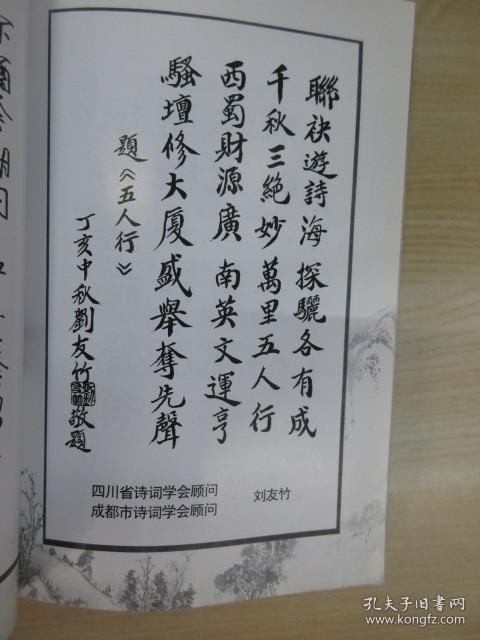 聯袂遊詩海 探驪各有成
千秋三絶妙 萬里五人行
西蜀財源廣 南英文運亨
騷壇修大廈 盛舉奪先聲
題《五人行》
丁亥中秋劉友竹敬題
四川省诗词学会顾问
成都市诗词学会顾问
刘友竹
孔夫子旧书网
www.kongfz.com